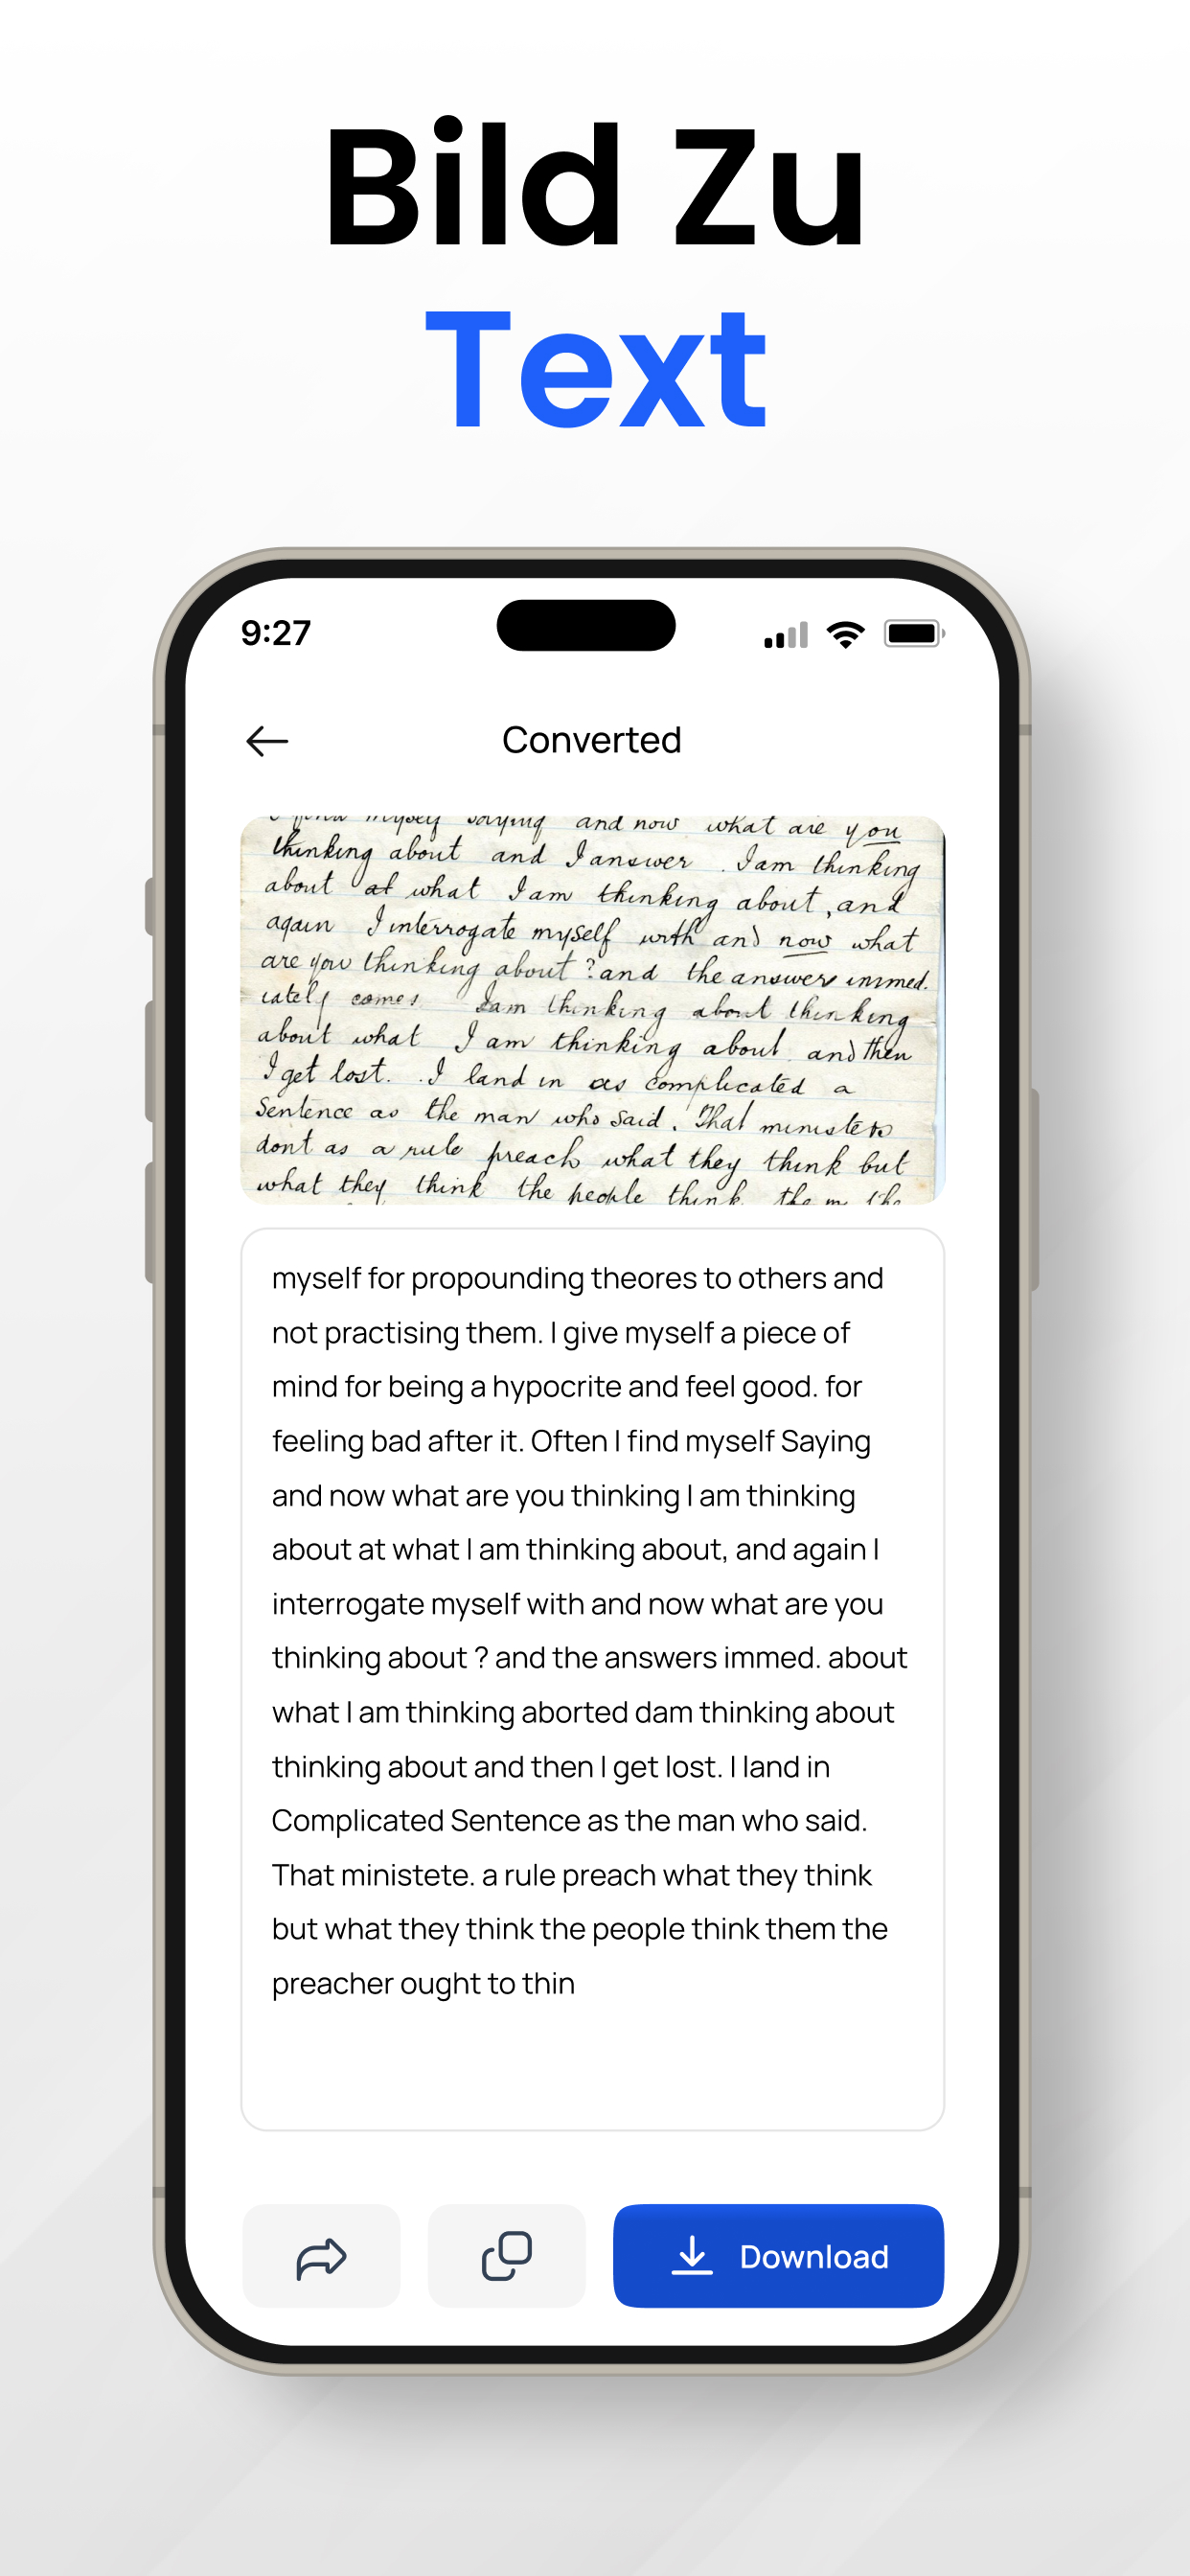 Bild Zu
Text
9:27
Converted
I find myself saying and now what are you
thinking about and I answer . I am thinking
about at what I am thinking about, and
again I interrogate myself with and now what
are you thinking about ? and the answer immed.
iately comes I am thinking about thinking
about what I am thinking about and then
I get lost. . I land in as complicated a
Sentence as the man who said. That ministers
dont as a rule preach what they think but
what they think the people think the
myself for propounding theores to others and
not practising them. I give myself a piece of
mind for being a hypocrite and feel good. for
feeling bad after it. Often I find myself Saying
and now what are you thinking I am thinking
about at what I am thinking about, and again I
interrogate myself with and now what are you
thinking about ? and the answers immed. about
what I am thinking aborted dam thinking about
thinking about and then I get lost. I land in
Complicated Sentence as the man who said.
That ministete. a rule preach what they think
but what they think the people think them the
preacher ought to thin
Download